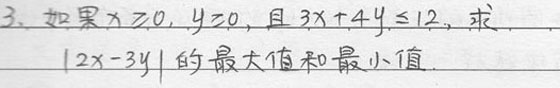 3、如果 x≥0, y≥0, 且 3x+4y≤12, 求
|2x-3y| 的最大值和最小值.